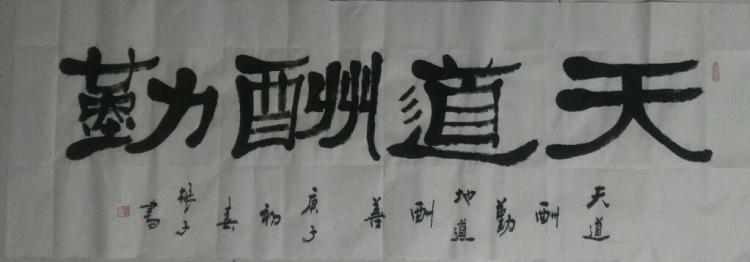 天道酬勤
天道
酬
勤
地道
酬
善
庚子
初
春
振子
書